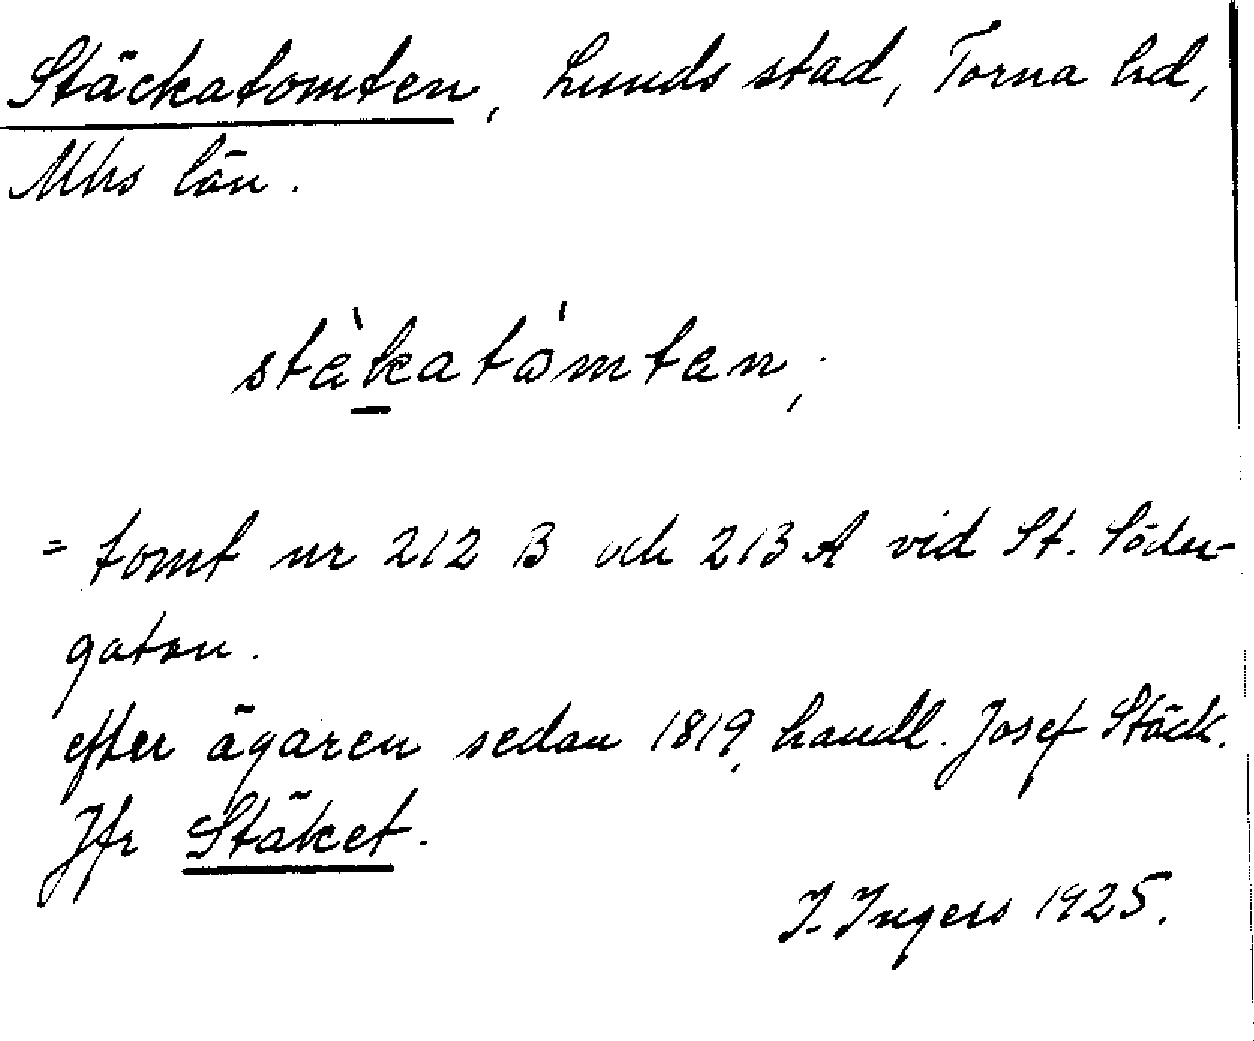 Stäckatomten, Lunds stad, Torna hd,
Mhs län.
stäkatomtan,
= tomt nr 212 B och 213 A vid St. Söder-
gatan.
efter ägaren sedan 1819, handl. Josef Stäck.
Jfr Stäket.
I. Ingers 1925.